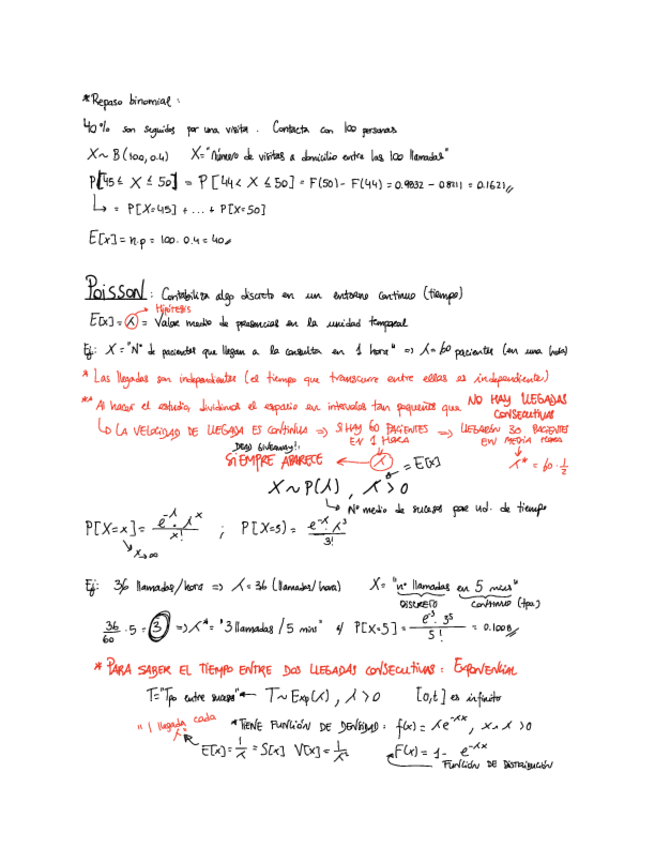 *Repaso binomial:
40% son seguidos por una visita. Contacta con 100 personas
X ~ B(100, 0.4)   X = "Número de visitas a domicilio entre las 100 llamadas"
P[45 ≤ X ≤ 50] = P[44 < X ≤ 50] = F(50) - F(44) = 0.9832 - 0.8211 = 0.1621
↳ = P[X=45] + ... + P[X=50]
E[x] = n.p = 100 · 0.4 = 40
Poisson: Contabiliza algo discreto en un entorno continuo (tiempo)
Hipótesis
E[x] = λ = Valor medio de presencias en la unidad temporal
Ej: X = "Nº de pacientes que llegan a la consulta en 1 hora" => λ = 60 pacientes (en una hora)
* Las llegadas son independientes (el tiempo que transcurre entre ellas es independiente)
** Al hacer el estudio, dividimos el espacio en intervalos tan pequeños que NO HAY LLEGADAS CONSECUTIVAS
↳ LA VELOCIDAD DE LLEGADA ES CONTINUA => SI HAY 60 PACIENTES EN 1 HORA => LLEGARÁN 30 PACIENTES EN MEDIA HORA
λ* = 60 · 1/2
DEAD GIVEAWAY!:
SIEMPRE APARECE ← λ = E[x]
X ~ P(λ), λ > 0
↳ Nº medio de sucesos por ud. de tiempo
P[X=x] = e^-λ · λ^x / x! ; P[X=3] = e^-λ · λ^3 / 3!
x→∞
Ej: 36 llamadas/hora => λ = 36 (llamadas/hora)   X = "nº llamadas en 5 mins"
DISCRETO   CONTINUO (tpo)
36/60 · 5 = 3 => λ* = "3 llamadas / 5 mins" P[X=5] = e^3 · 3^5 / 5! = 0.1008
* PARA SABER EL TIEMPO ENTRE DOS LLEGADAS CONSECUTIVAS: EXPONENCIAL
T = "Tpo entre sucesos" ← T ~ Exp(λ), λ > 0   [0,t] es infinito
"1 llegada cada λ"
* TIENE FUNCIÓN DE DENSIDAD: f(x) = λe^-λx, x,λ > 0
E[x] = 1/λ = S[x]   V[x] = 1/λ²   F(x) = 1 - e^-λx
FUNCIÓN DE DISTRIBUCIÓN